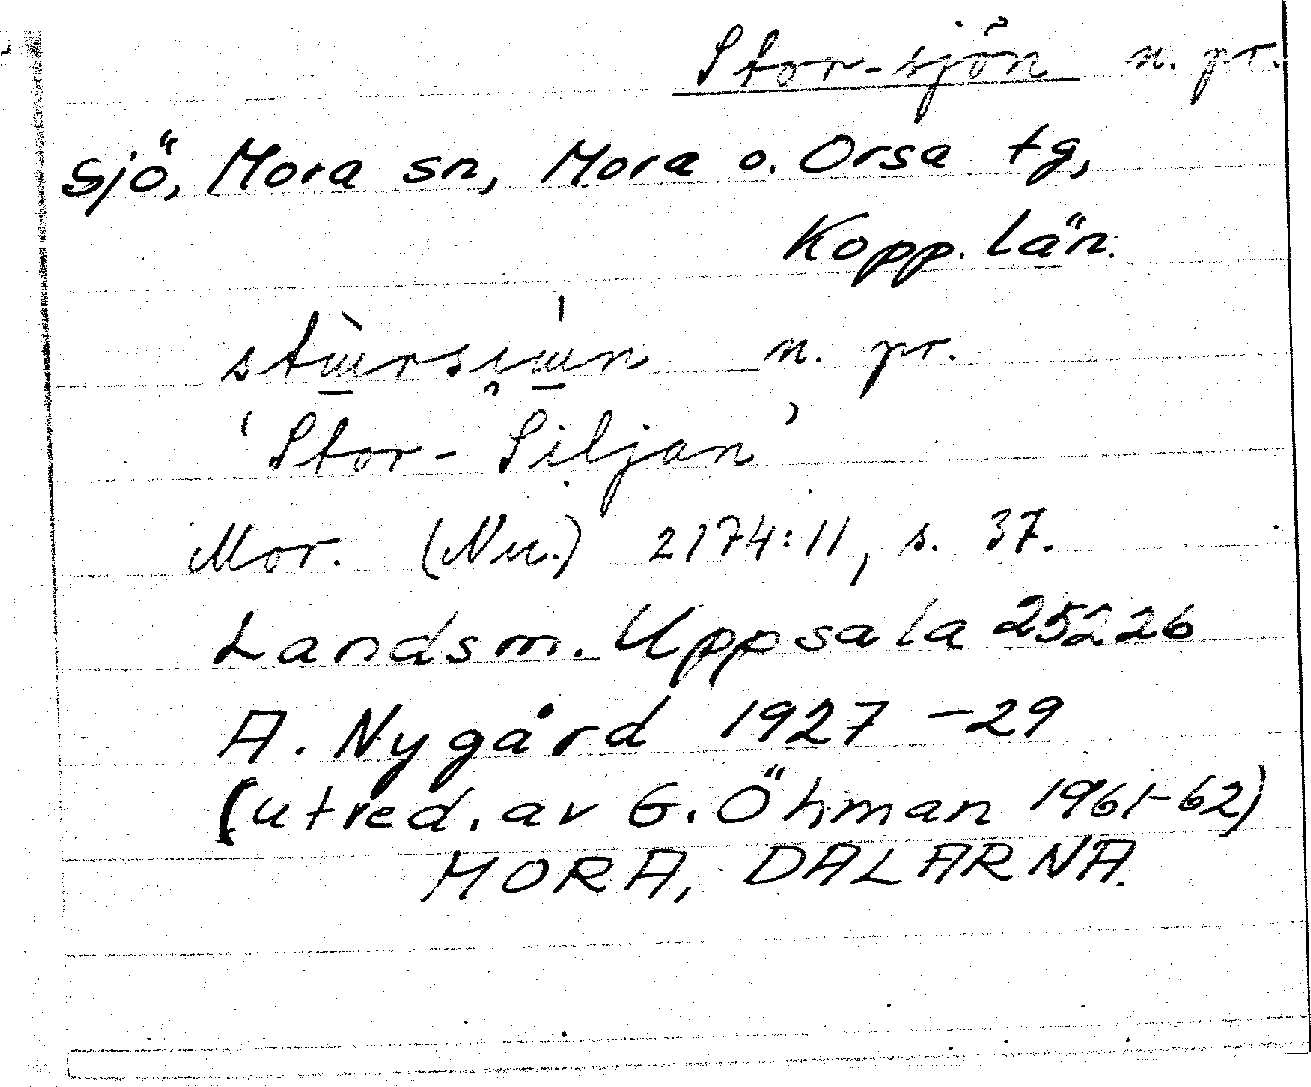 Stor-sjön n. pr.
Sjö, Mora sn, Mora o. Orsa tg,
Kopp. län.
n. pr.
'Stor-Siljan'
Mor. (Nu.) 2174:11, s. 37.
Landsm. Uppsala 25226
A. Nygård 1927-29
(utred. av G. Öhman 1961-62)
MORA, DALARNA.